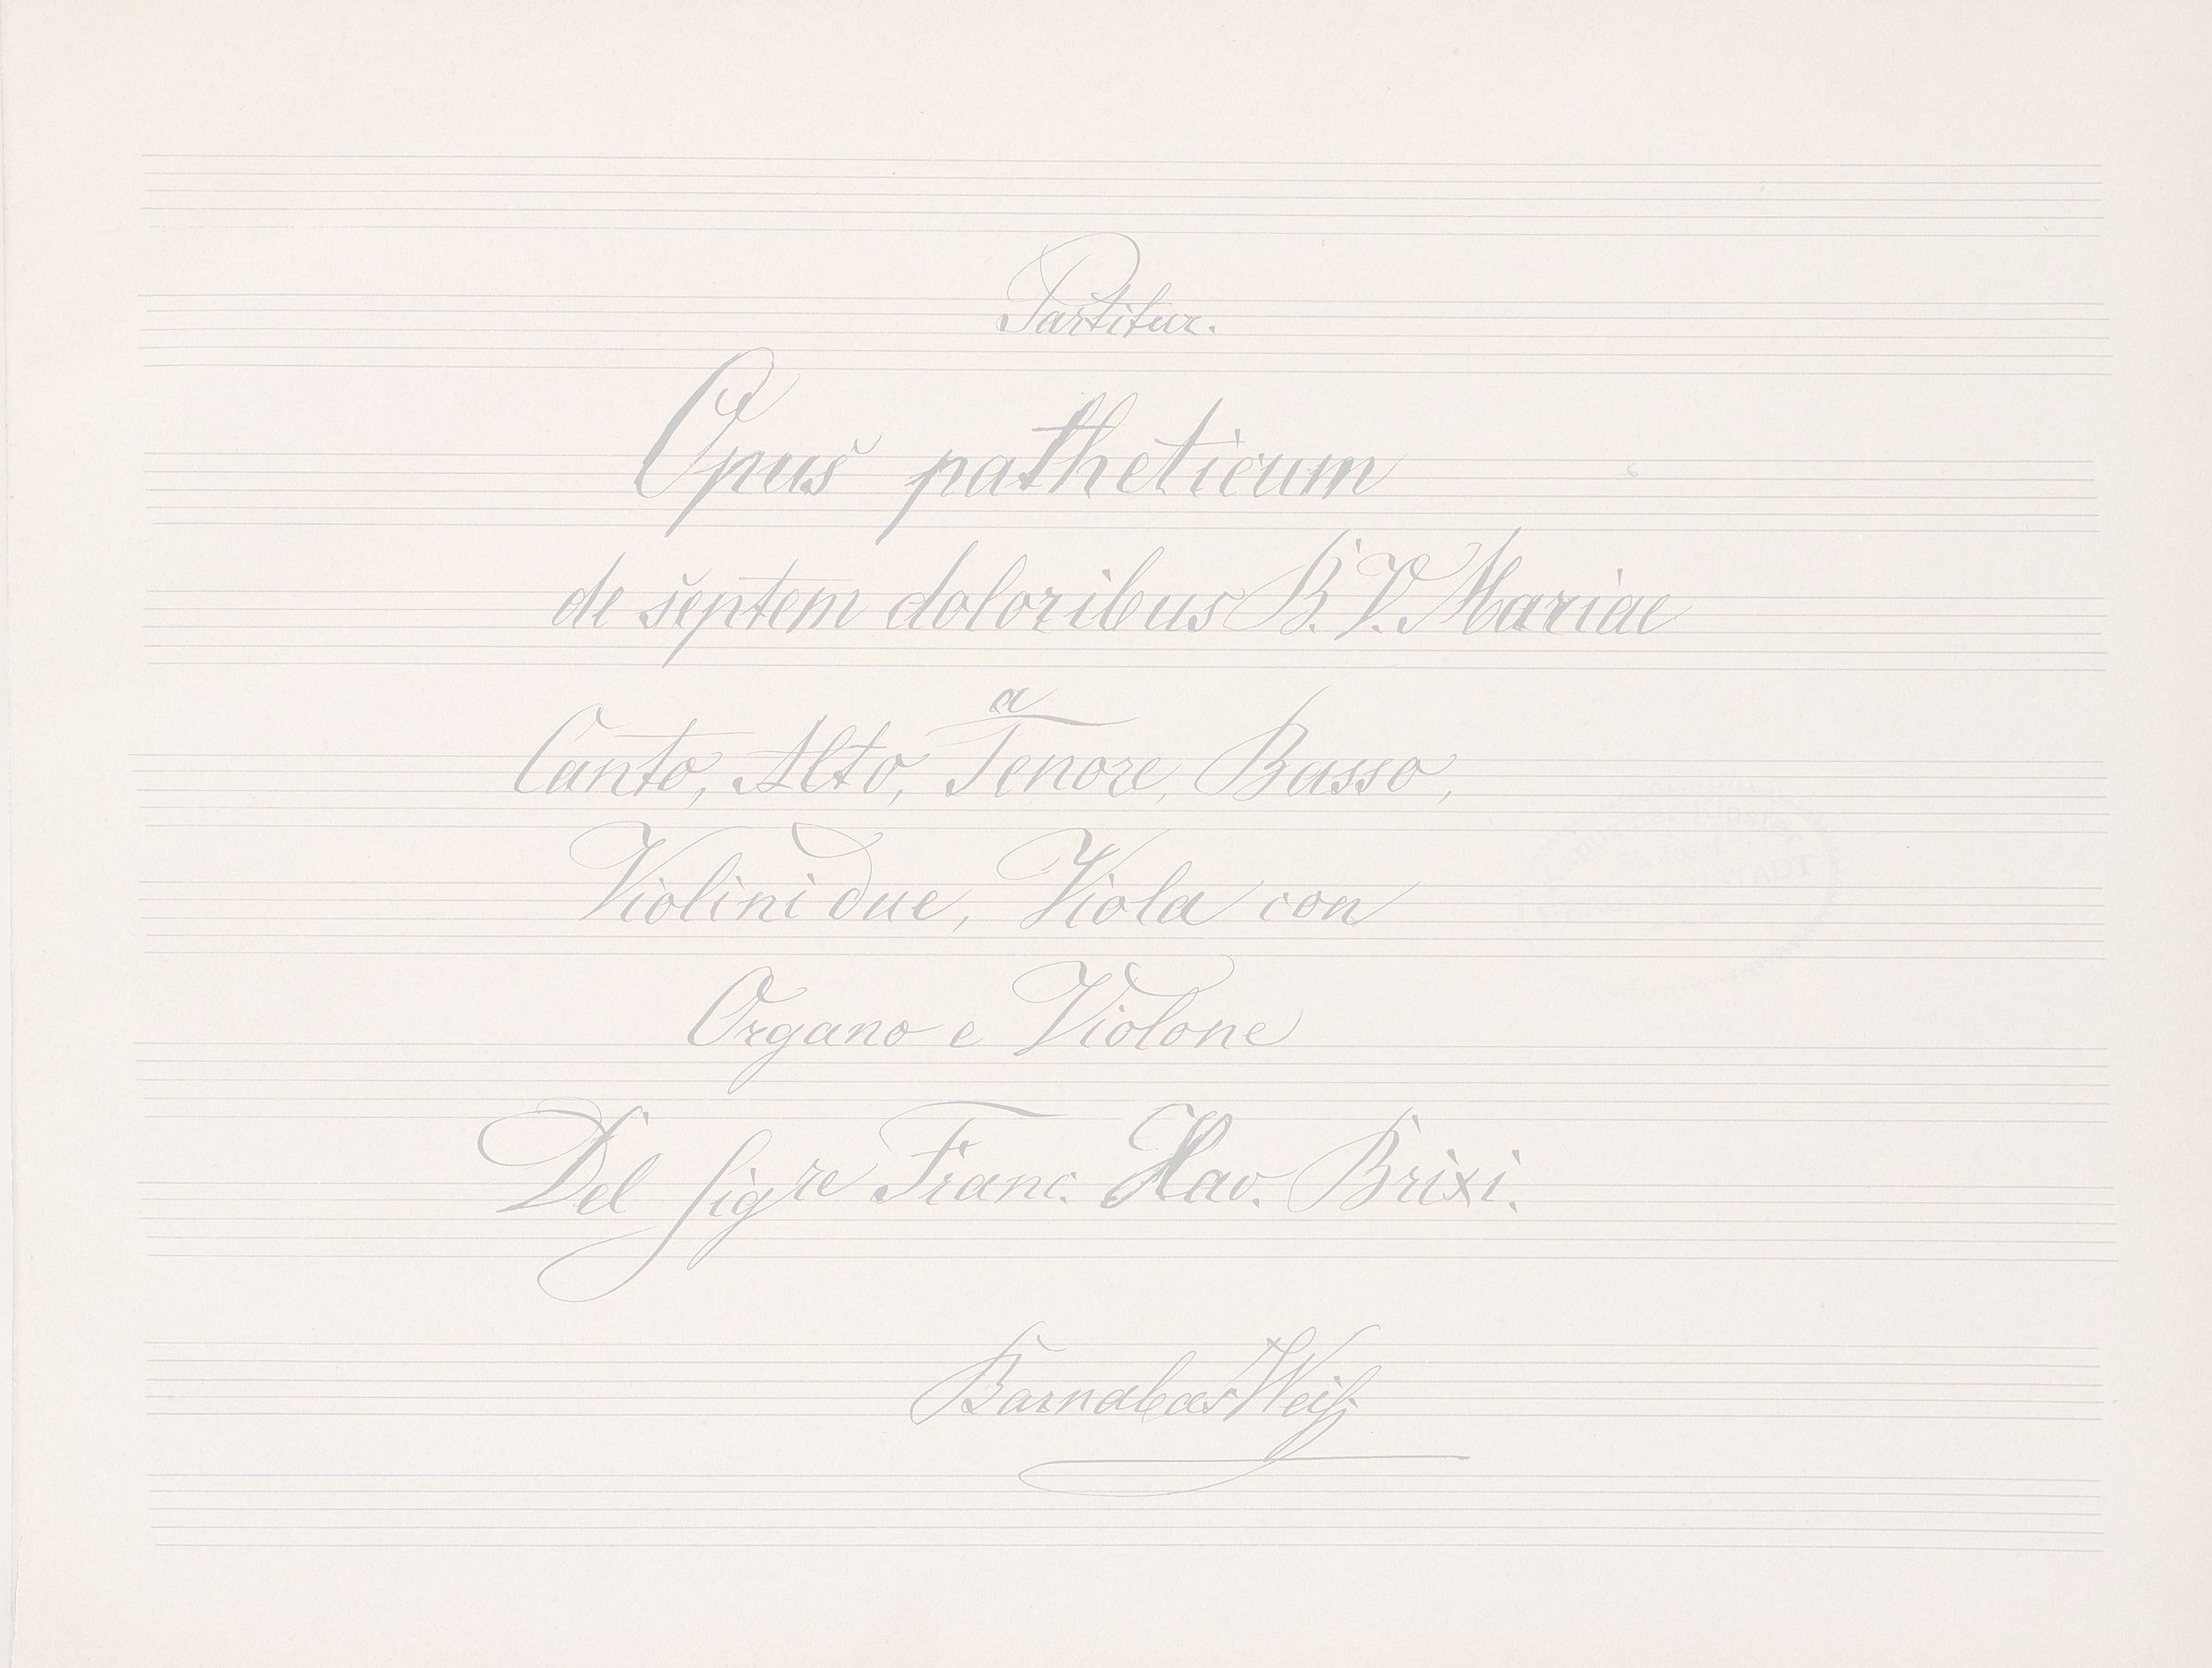 Partitur.
Opus patheticum
de septem doloribus B. V. Mariae
a
Canto, Alto, Tenore, Basso,
Violini due, Viola con
Organo e Violone
Del Sigre Franc. Xav. Brixi.
Barnabas Weiß